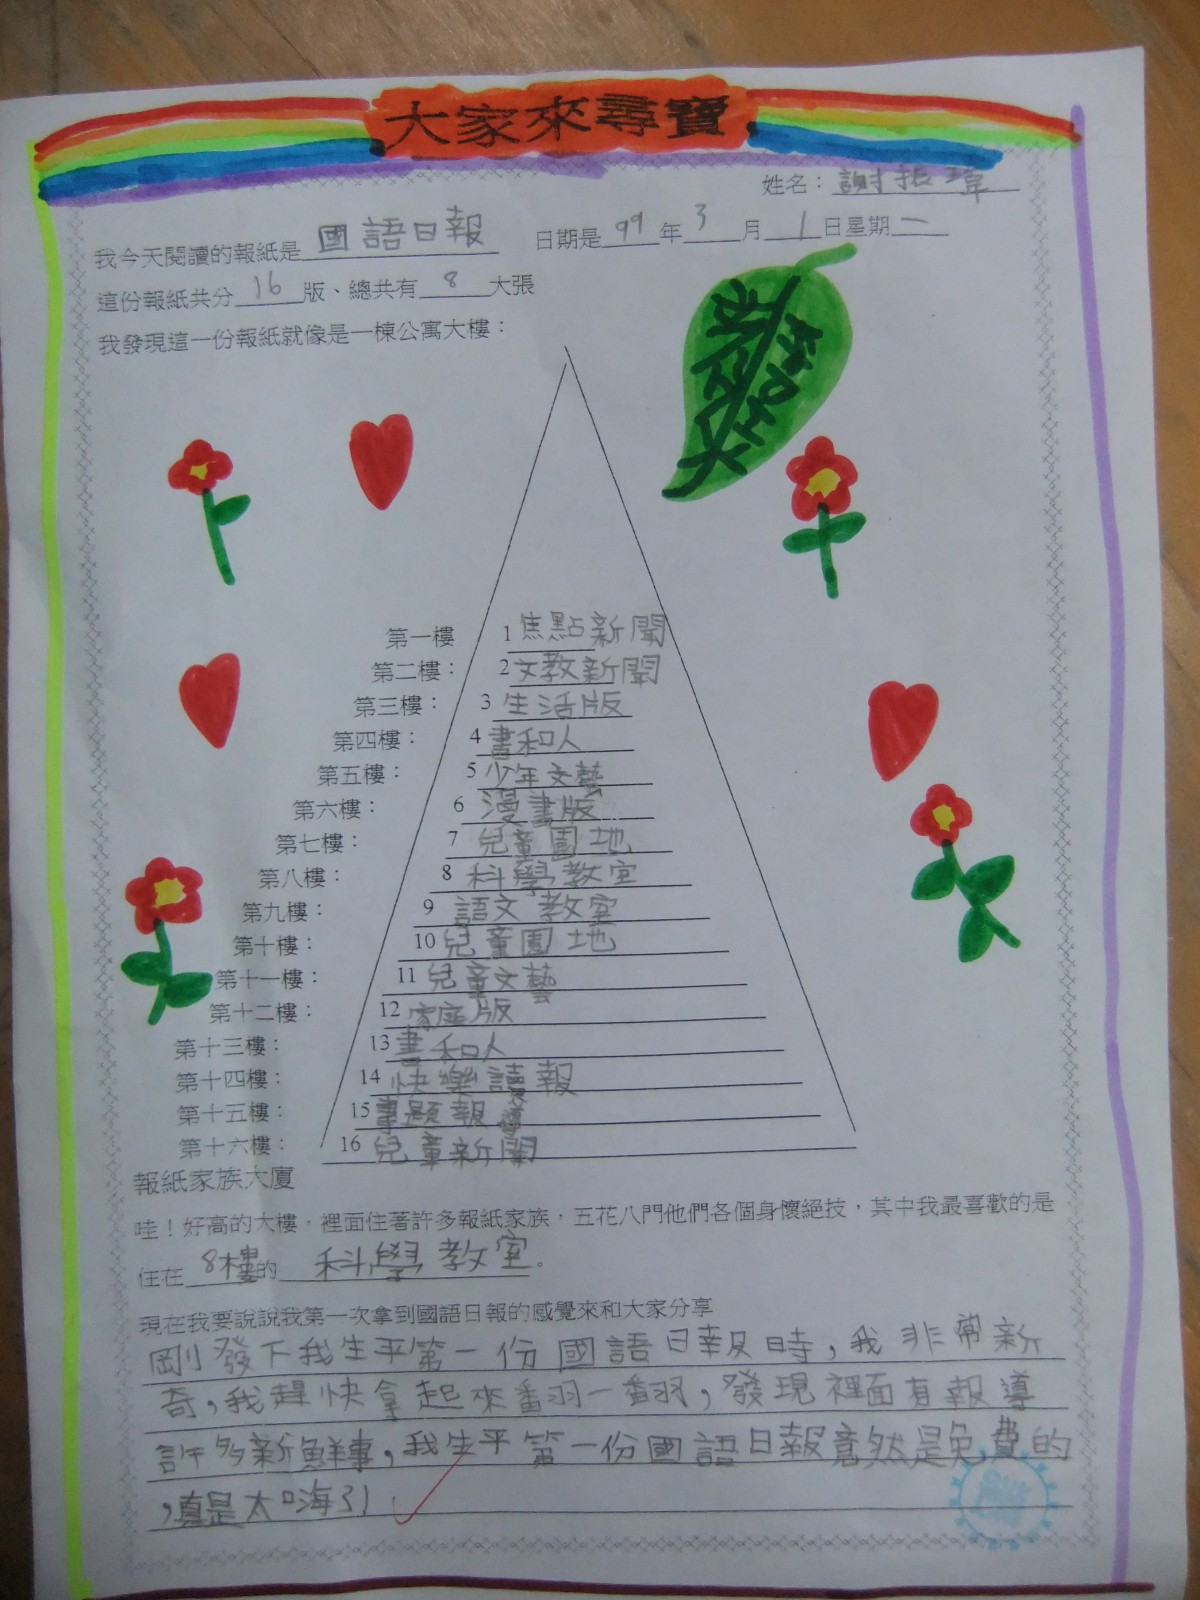 大家來尋寶
姓名：謝振瑋
我今天閱讀的報紙是國語日報 日期是99年3月1日星期二
這份報紙共分16版、總共有8大張
我發現這一份報紙就像是一棟公寓大樓：
第一樓 1焦點新聞
第二樓： 2文教新聞
第三樓： 3生活版
第四樓： 4書和人
第五樓： 5少年文藝
第六樓： 6漫畫版
第七樓： 7兒童園地
第八樓： 8科學教室
第九樓： 9語文教室
第十樓： 10兒童園地
第十一樓： 11兒童文藝
第十二樓： 12家庭版
第十三樓： 13書和人
第十四樓： 14快樂讀報
第十五樓： 15專題報導
第十六樓： 16兒童新聞
報紙家族大廈
哇！好高的大樓，裡面住著許多報紙家族，五花八門他們各個身懷絕技，其中我最喜歡的是
住在8樓的科學教室。
現在我要說說我第一次拿到國語日報的感覺來和大家分享
剛發下我生平第一份國語日報時，我非常新
奇，我趕快拿起來翻一翻，發現裡面有報導
許多新鮮事，我生平第一份國語日報竟然是免費的
，真是太嗨了!